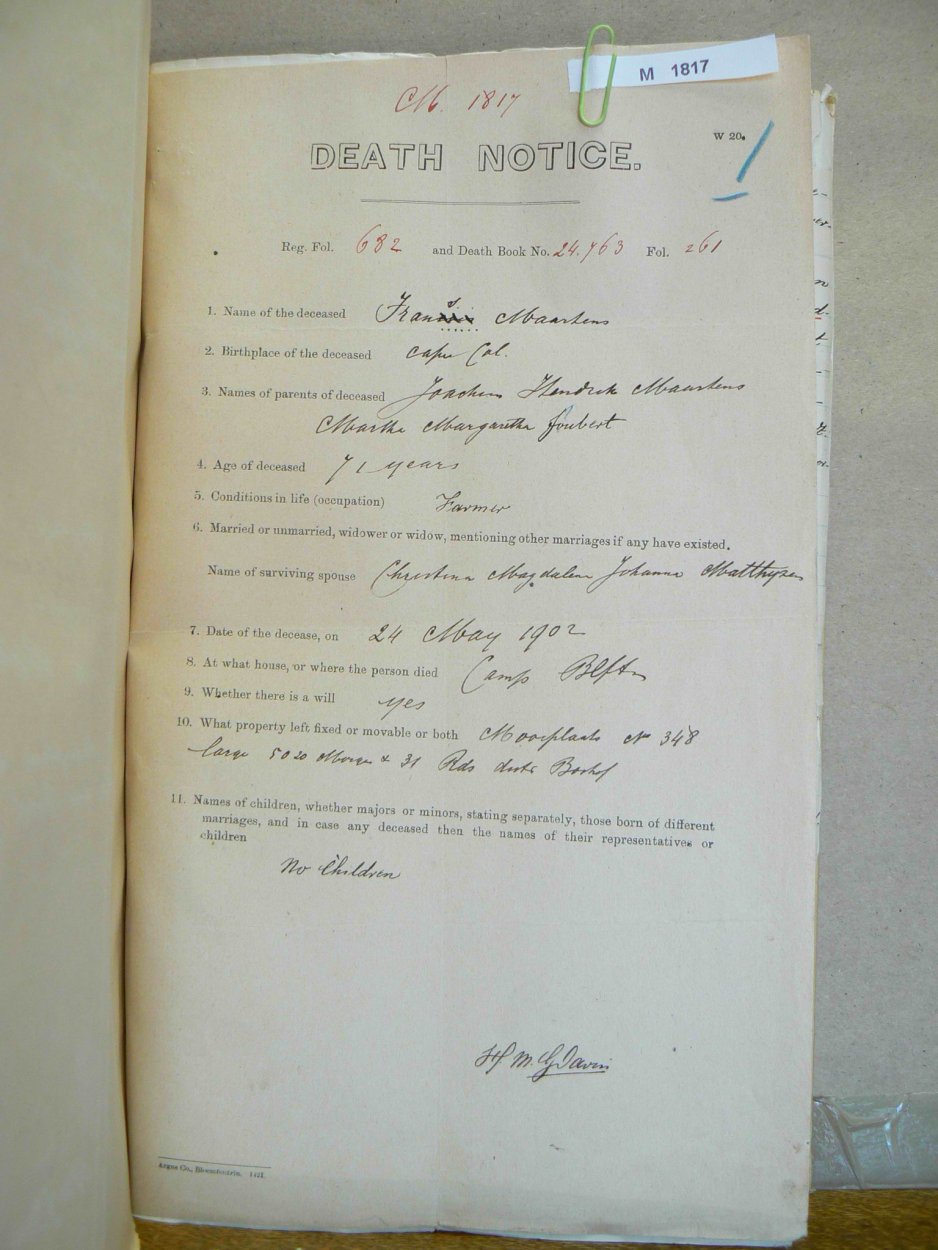 M 1817
M. 1817
W 20.
1
DEATH NOTICE.
Reg. Fol. 682 and Death Book No. 24.763 Fol. 261
1. Name of the deceased Frans Maartens
2. Birthplace of the deceased Cape Col.
3. Names of parents of deceased Joachim Hendrik Maartens
Martha Margaretha Joubert
4. Age of deceased 71 years
5. Conditions in life (occupation) Farmer
6. Married or unmarried, widower or widow, mentioning other marriages if any have existed.
Name of surviving spouse Christina Magdalena Johanna Matthysen
7. Date of the decease, on 24 May 1902
8. At what house, or where the person died Camp Blftn
9. Whether there is a will yes
10. What property left fixed or movable or both Mooiplaats No 348
large 5020 Morgen & 31 Rds distr Boshof
11. Names of children, whether majors or minors, stating separately, those born of different
marriages, and in case any deceased then the names of their representatives or
children
No Children
Argus Co., Bloemfontein.